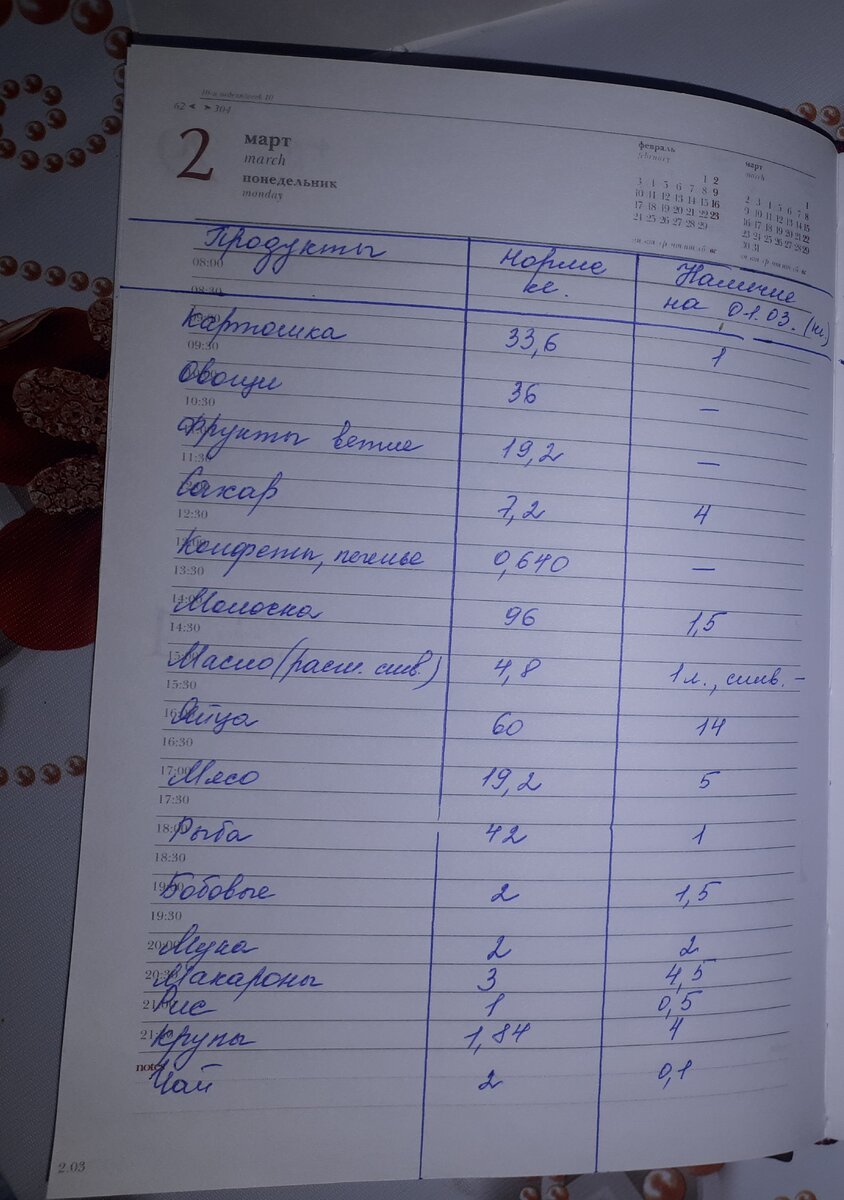 10-я неделя/week 10
62 ◄ ► 304
2 март
march
понедельник
monday
февраль
february
1 2
3 4 5 6 7 8 9
10 11 12 13 14 15 16
17 18 19 20 21 22 23
24 25 26 27 28 29
пн вт ср чт пт сб вс
март
march
1
2 3 4 5 6 7 8
9 10 11 12 13 14 15
16 17 18 19 20 21 22
23 24 25 26 27 28 29
30 31
пн вт ср чт пт сб вс
Продукты Норма кг. Наличие на 01.03. (кг)
08:00
08:30
09:00
Картошка 33,6 1
09:30
Овощи 36 —
10:30
Фрукты свежие 19,2 —
11:30
Сахар 7,2 4
12:30
Конфеты, печенье 0,640 —
13:30
14:00
Молочка 96 1,5
14:30
15:00
Масло (раст. слив.) 4,8 1 л., слив. –
15:30
16:00
Яйца 60 14
16:30
17:00
Мясо 19,2 5
17:30
18:00
Рыба 42 1
18:30
19:00
Бобовые 2 1,5
19:30
20:00
Мука 2 2
20:30
Макароны 3 4,5
21:00
Рис 1 0,5
21:30
Крупы 1,84 4
notes
Чай 2 0,1
2.03